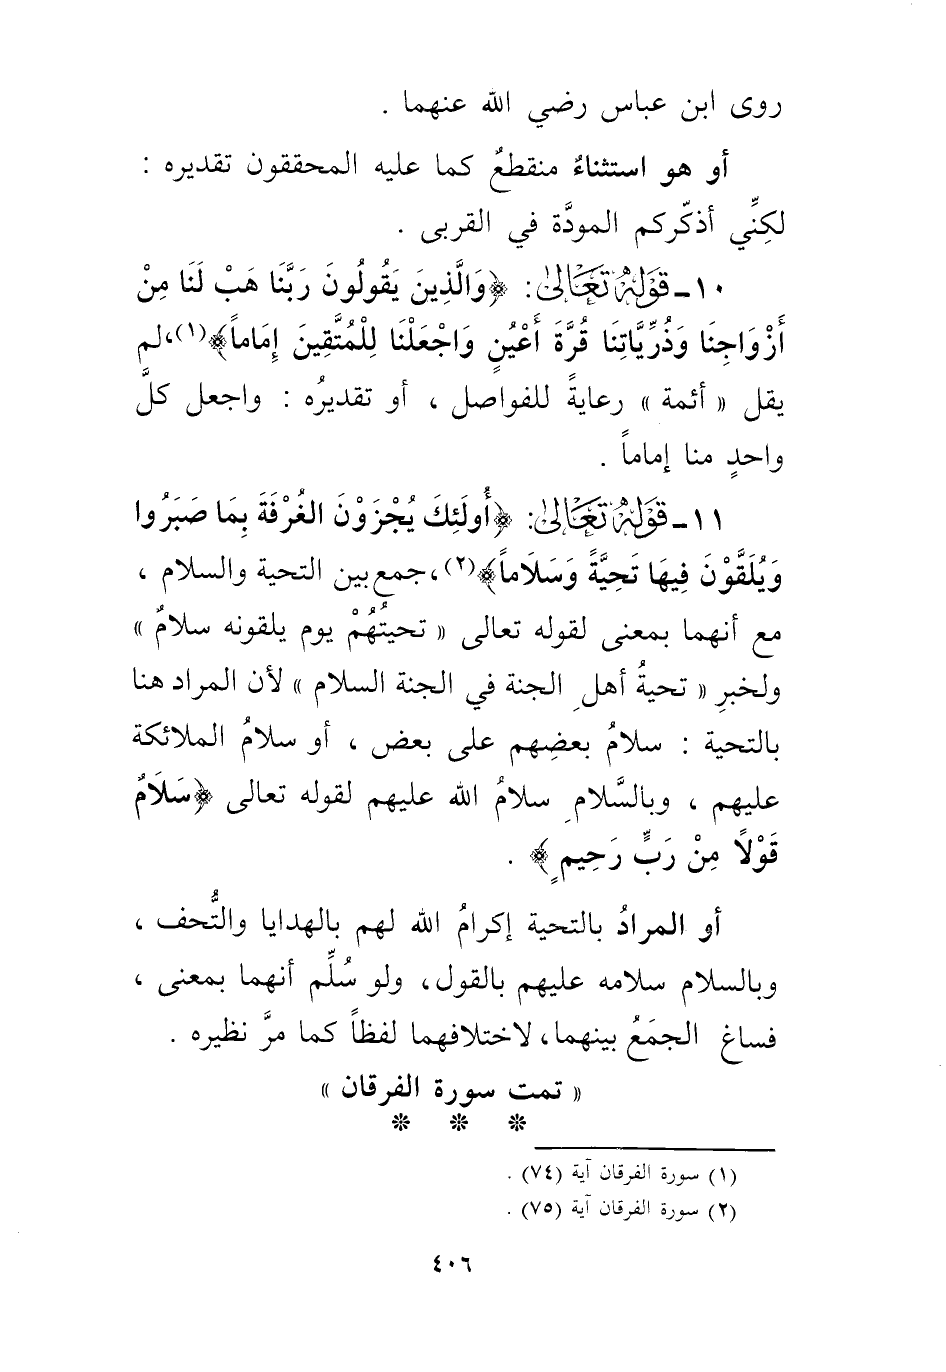 روى ابن عباس رضي الله عنهما .
أو هو استثناءٌ منقطعٌ كما عليه المحققون تقديره :
لكِنِّي أذكّركم المودَّة في القربى .
١٠ - قَوْلُهُ تَعَالَىٰ : ﴿وَالَّذِينَ يَقُولُونَ رَبَّنَا هَبْ لَنَا مِنْ
أَزْوَاجِنَا وَذُرِّيَّاتِنَا قُرَّةَ أَعْيُنٍ وَاجْعَلْنَا لِلْمُتَّقِينَ إِمَاماً﴾(١)، لم
يقل « أئمة » رعايةً للفواصل ، أو تقديرُه : واجعل كلَّ
واحدٍ منا إماماً .
١١ - قَوْلُهُ تَعَالَىٰ : ﴿أُولَئِكَ يُجْزَوْنَ الغُرْفَةَ بِمَا صَبَرُوا
وَيُلَقَّوْنَ فِيهَا تَحِيَّةً وَسَلَاماً﴾(٢)، جمع بين التحية والسلام ،
مع أنهما بمعنى لقوله تعالى « تحيتُهُمْ يوم يلقونه سلامٌ »
ولخبرِ « تحيةُ أهلِ الجنة في الجنة السلام » لأن المراد هنا
بالتحية : سلامُ بعضِهم على بعض ، أو سلامُ الملائكة
عليهم ، وبالسَّلامِ سلامُ الله عليهم لقوله تعالى ﴿سَلَامٌ
قَوْلًا مِنْ رَبٍّ رَحِيمٍ﴾ .
أو المرادُ بالتحية إكرامُ الله لهم بالهدايا والتُّحف ،
وبالسلام سلامه عليهم بالقول، ولو سُلِّم أنهما بمعنى ،
فساغ الجمَعُ بينهما، لاختلافهما لفظاً كما مرَّ نظيره .
« تمت سورة الفرقان »
* * *
(١) سورة الفرقان آية (٧٤) .
(٢) سورة الفرقان آية (٧٥) .
٤٠٦